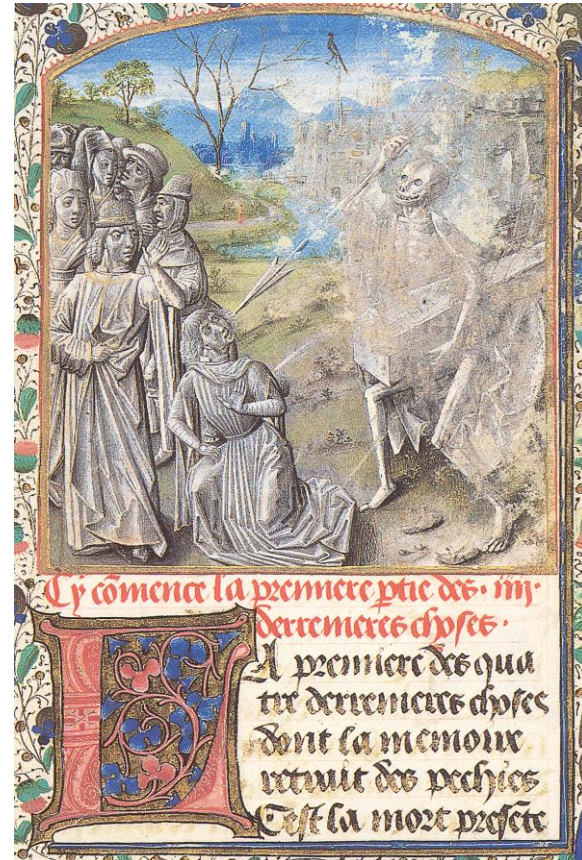 Cy cõmence la premiere ptie des · iiij ·
derrenieres choses ·
LA premiere des qua
tre derrenieres choses
dont la memoire
retrait des pechies
C'est la mort presẽte